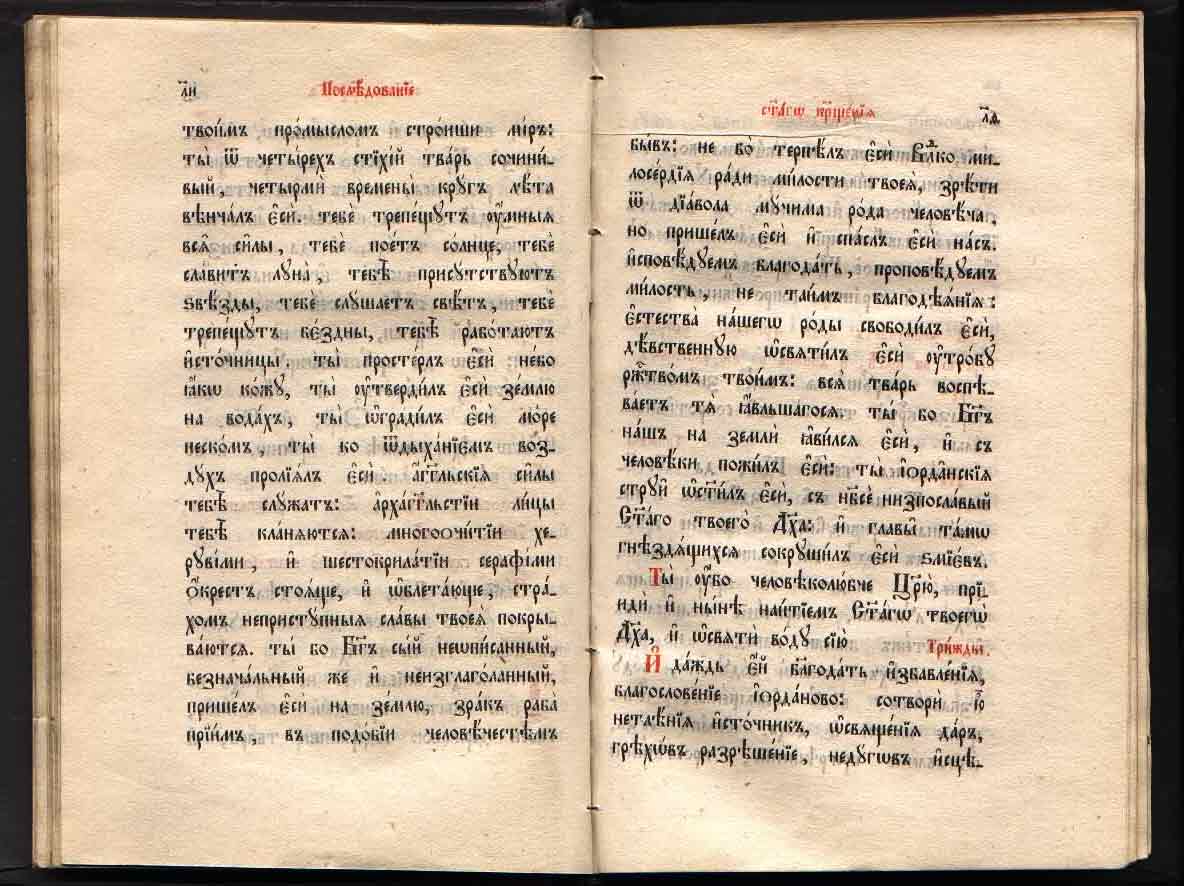 л҃и
Послѣдованїе
твои́мъ про́мысломъ стро́иши мі́ръ:
ты̀ ѿ четы́рехъ стїхі́й тва́рь сочини́-
вый, четы́рми времены̀ крꙋ́гъ лѣ́та
вѣнча́лъ є҆сѝ. тебѐ трепе́щꙋтъ ᲂу҆́мныѧ
всѧ̑ си́лы, тебѐ пое́тъ со́лнце, тебѐ
сла́витъ лꙋна̀, тебѣ̀ присꙋ́тствꙋютъ
ѕвѣ́зды, тебѐ слꙋ́шаетъ свѣ́тъ, тебѐ
трепе́щꙋтъ бе́здны, тебѣ̀ рабо́таютъ
и҆сто́чницы. ты̀ просте́рлъ є҆сѝ не́бо
ꙗ҆́кѡ ко́жꙋ, ты̀ ᲂу҆тверди́лъ є҆сѝ зе́млю
на вода́хъ, ты̀ ѡ҆гради́лъ є҆сѝ мо́ре
песко́мъ, ты̀ ко ѿдыха́нїемъ воз-
дꙋ́хъ пролїѧ́лъ є҆сѝ. а҆́гг҃льскїѧ си́лы
тебѣ̀ слꙋ́жатъ: а҆рха́гг҃льстїи ли́цы
тебѣ̀ кла́нѧютсѧ: многоочи́тїи хе-
рꙋві́ми, и҆ шестокрила́тїи серафі́ми
ѻ҆́крестъ стоѧ́ще, и҆ ѡ҆блета́юще, стра́-
хомъ непристꙋ́пныѧ сла́вы твоеѧ̀ покры-
ва́ютсѧ. ты̀ бо Бг҃ъ сы́й неѡпи́санный,
безнача́льный же и҆ неизглаго́ланный,
прише́лъ є҆сѝ на зе́млю, зра́къ раба̀
прїи́мъ, въ подо́бїи человѣ́честѣмъ
ст҃а́гѡ кр҃ще́нїѧ
л҃ѳ
бы́въ: не бо̀ терпѣ́лъ є҆сѝ Вл҃ко, ми-
лосе́рдїѧ ра́ди ми́лости твоеѧ̀, зрѣ́ти
ѿ дїа́вола мꙋ́чима ро́да человѣ́ча.
но прише́лъ є҆сѝ и҆ спа́слъ є҆сѝ на́съ.
и҆сповѣ́дꙋемъ благода́ть, проповѣ́дꙋемъ
ми́лость, не таи́мъ благодѣѧ́нїѧ:
є҆стества̀ на́шегѡ ро́ды свободи́лъ є҆сѝ,
дѣ́вственнꙋю ѡ҆свѧти́лъ є҆сѝ ᲂу҆тро́бꙋ
рж҃тво́мъ твои́мъ: всѧ̀ тва́рь воспѣ-
ва́етъ тѧ̀ ꙗ҆́вльшагосѧ. ты́ бо Бг҃ъ
на́шъ на землѝ ꙗ҆ви́лсѧ є҆сѝ, и҆ съ
человѣ́ки пожи́лъ є҆сѝ: ты̀ і҆ѻрда̑нскїѧ
стрꙋи̑ ѡ҆ст҃и́лъ є҆сѝ, съ нб҃сѐ низпосла́вый
Ст҃а́го твоего̀ Дх҃а: и҆ главы̑ та́мѡ
гнѣздѧ́щихсѧ сокрꙋши́лъ є҆сѝ ѕмїе́въ.
Ты̀ ᲂу҆́бо человѣколю́бче Цр҃ю̀, прі-
идѝ и҆ ны́нѣ наи́тїемъ Ст҃а́гѡ твоегѡ̀
Дх҃а, и҆ ѡ҆свѧтѝ во́дꙋ сїю̀
Три́жды.
И҆ да́ждь є҆́й бл҃года́ть и҆збавле́нїѧ,
благослове́нїе і҆ѻрда́ново: сотворѝ ю҆̀
нетлѣ́нїѧ и҆сто́чникъ, ѡ҆свѧще́нїѧ да́ръ,
грѣхѡ́въ разрѣше́нїе, недꙋ́гѡвъ и҆сцѣ-